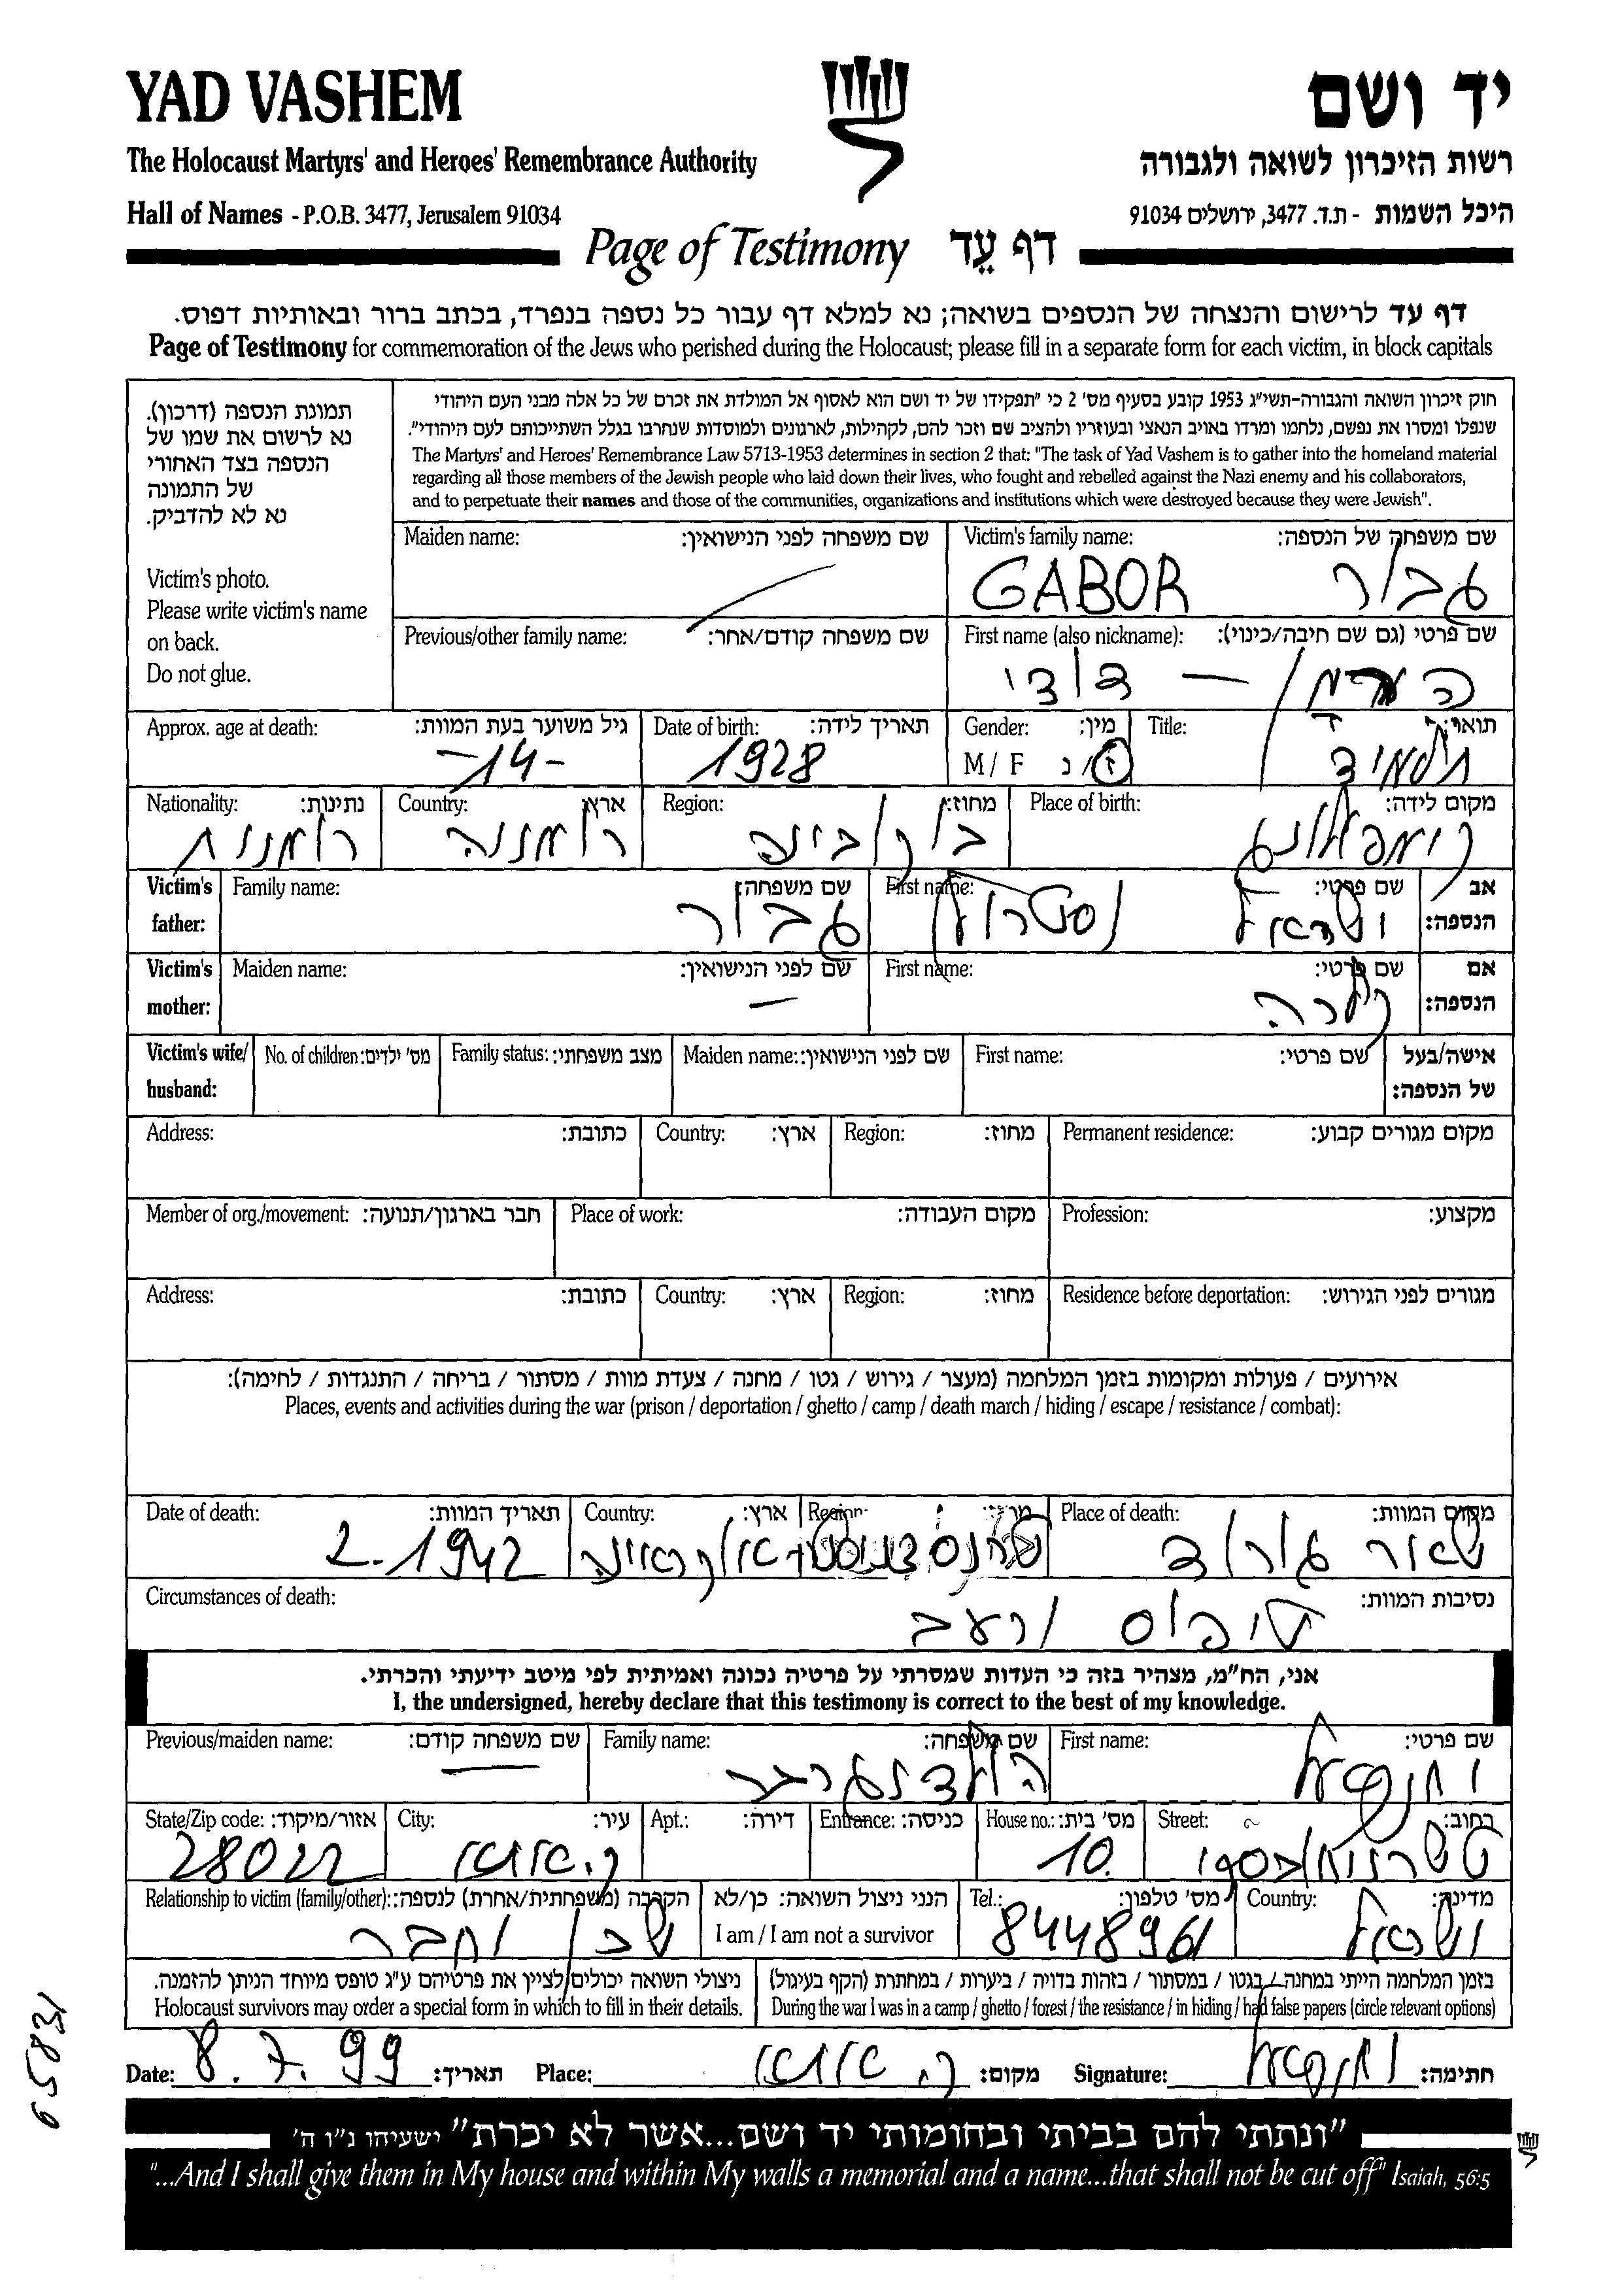 YAD VASHEM
יד ושם
The Holocaust Martyrs' and Heroes' Remembrance Authority
רשות הזיכרון לשואה ולגבורה
Hall of Names - P.O.B. 3477, Jerusalem 91034
היכל השמות - ת.ד. 3477, ירושלים 91034
Page of Testimony דף עֵד
דף עד לרישום והנצחה של הנספים בשואה; נא למלא דף עבור כל נספה בנפרד, בכתב ברור ובאותיות דפוס.
Page of Testimony for commemoration of the Jews who perished during the Holocaust; please fill in a separate form for each victim, in block capitals
תמונת הנספה (דרכון).
נא לרשום את שמו של
הנספה בצד האחורי
של התמונה
נא לא להדביק.
Victim's photo.
Please write victim's name
on back.
Do not glue.
חוק זיכרון השואה והגבורה-תשי"ג 1953 קובע בסעיף מס' 2 כי "תפקידו של יד ושם הוא לאסוף אל המולדת את זכרם של כל אלה מבני העם היהודי
שנפלו ומסרו את נפשם, נלחמו ומרדו באויב הנאצי ובעוזריו ולהציב שם וזכר להם, לקהילות, לארגונים ולמוסדות שנחרבו בגלל השתייכותם לעם היהודי".
The Martyrs' and Heroes' Remembrance Law 5713-1953 determines in section 2 that: "The task of Yad Vashem is to gather into the homeland material
regarding all those members of the Jewish people who laid down their lives, who fought and rebelled against the Nazi enemy and his collaborators,
and to perpetuate their names and those of the communities, organizations and institutions which were destroyed because they were Jewish".
Maiden name: שם משפחה לפני הנישואין:
Victim's family name: שם משפחה של הנספה:
GABOR גבור
Previous/other family name: שם משפחה קודם/אחר:
First name (also nickname): שם פרטי (גם שם חיבה/כינוי):
הרמן - דודי
Approx. age at death: גיל משוער בעת המוות:
-14-
Date of birth: תאריך לידה:
1928
Gender: מין:
M / F ז / נ
Title: תואר:
תלמיד
Nationality: נתינות:
רומנית
Country: ארץ:
רומניה
Region: מחוז:
בוקובינה
Place of birth: מקום לידה:
קימפולונג
Victim's father: אב הנספה:
Family name: שם משפחה:
גבור
First name: שם פרטי:
ישראל
Victim's mother: אם הנספה:
Maiden name: שם לפני הנישואין:
—
First name: שם פרטי:
קלרה
Victim's wife/ husband: אישה/בעל של הנספה:
No. of children: מס' ילדים:
Family status: מצב משפחתי:
Maiden name: שם לפני הנישואין:
First name: שם פרטי:
Address: כתובת:
Country: ארץ:
Region: מחוז:
Permanent residence: מקום מגורים קבוע:
Member of org./movement: חבר בארגון/תנועה:
Place of work: מקום העבודה:
Profession: מקצוע:
Address: כתובת:
Country: ארץ:
Region: מחוז:
Residence before deportation: מגורים לפני הגירוש:
אירועים / פעולות ומקומות בזמן המלחמה (מעצר / גירוש / גטו / מחנה / צעדת מוות / מסתור / בריחה / התנגדות / לחימה):
Places, events and activities during the war (prison / deportation / ghetto / camp / death march / hiding / escape / resistance / combat):
Date of death: תאריך המוות:
2.1942
Country: ארץ:
Region: מחוז:
טרנסדניסטר-אוקראינה
Place of death: מקום המוות:
שארגורוד
Circumstances of death: נסיבות המוות:
טיפוס ורעב
אני, הח"מ, מצהיר בזה כי העדות שמסרתי על פרטיה נכונה ואמיתית לפי מיטב ידיעתי והכרתי.
I, the undersigned, hereby declare that this testimony is correct to the best of my knowledge.
Previous/maiden name: שם משפחה קודם:
Family name: שם משפחה:
הולדנגרבר
First name: שם פרטי:
יחזקאל
State/Zip code: אזור/מיקוד:
28022
City: עיר:
ק. אתא
Apt.: דירה:
Entrance: כניסה:
House no.: מס' בית:
10
Street: רחוב:
טשרניחובסקי
Relationship to victim (family/other): הקרבה (משפחתית/אחרת) לנספה:
שכן וחבר
הנני ניצול השואה: כן/לא
I am / I am not a survivor
Tel.: מס' טלפון:
8448961
Country: מדינה:
ישראל
ניצולי השואה יכולים לציין את פרטיהם ע"ג טופס מיוחד הניתן להזמנה.
Holocaust survivors may order a special form in which to fill in their details.
בזמן המלחמה הייתי במחנה / בגטו / במסתור / בזהות בדויה / ביערות / במחתרת (הקף בעיגול)
During the war I was in a camp / ghetto / forest / the resistance / in hiding / had false papers (circle relevant options)
Date: 8.7.99 תאריך: Place: ק. אתא מקום: Signature: יחזקאל חתימה:
"ונתתי להם בביתי ובחומותי יד ושם...אשר לא יכרת" ישעיהו נ"ו ה'
"...And I shall give them in My house and within My walls a memorial and a name...that shall not be cut off" Isaiah, 56:5
65831